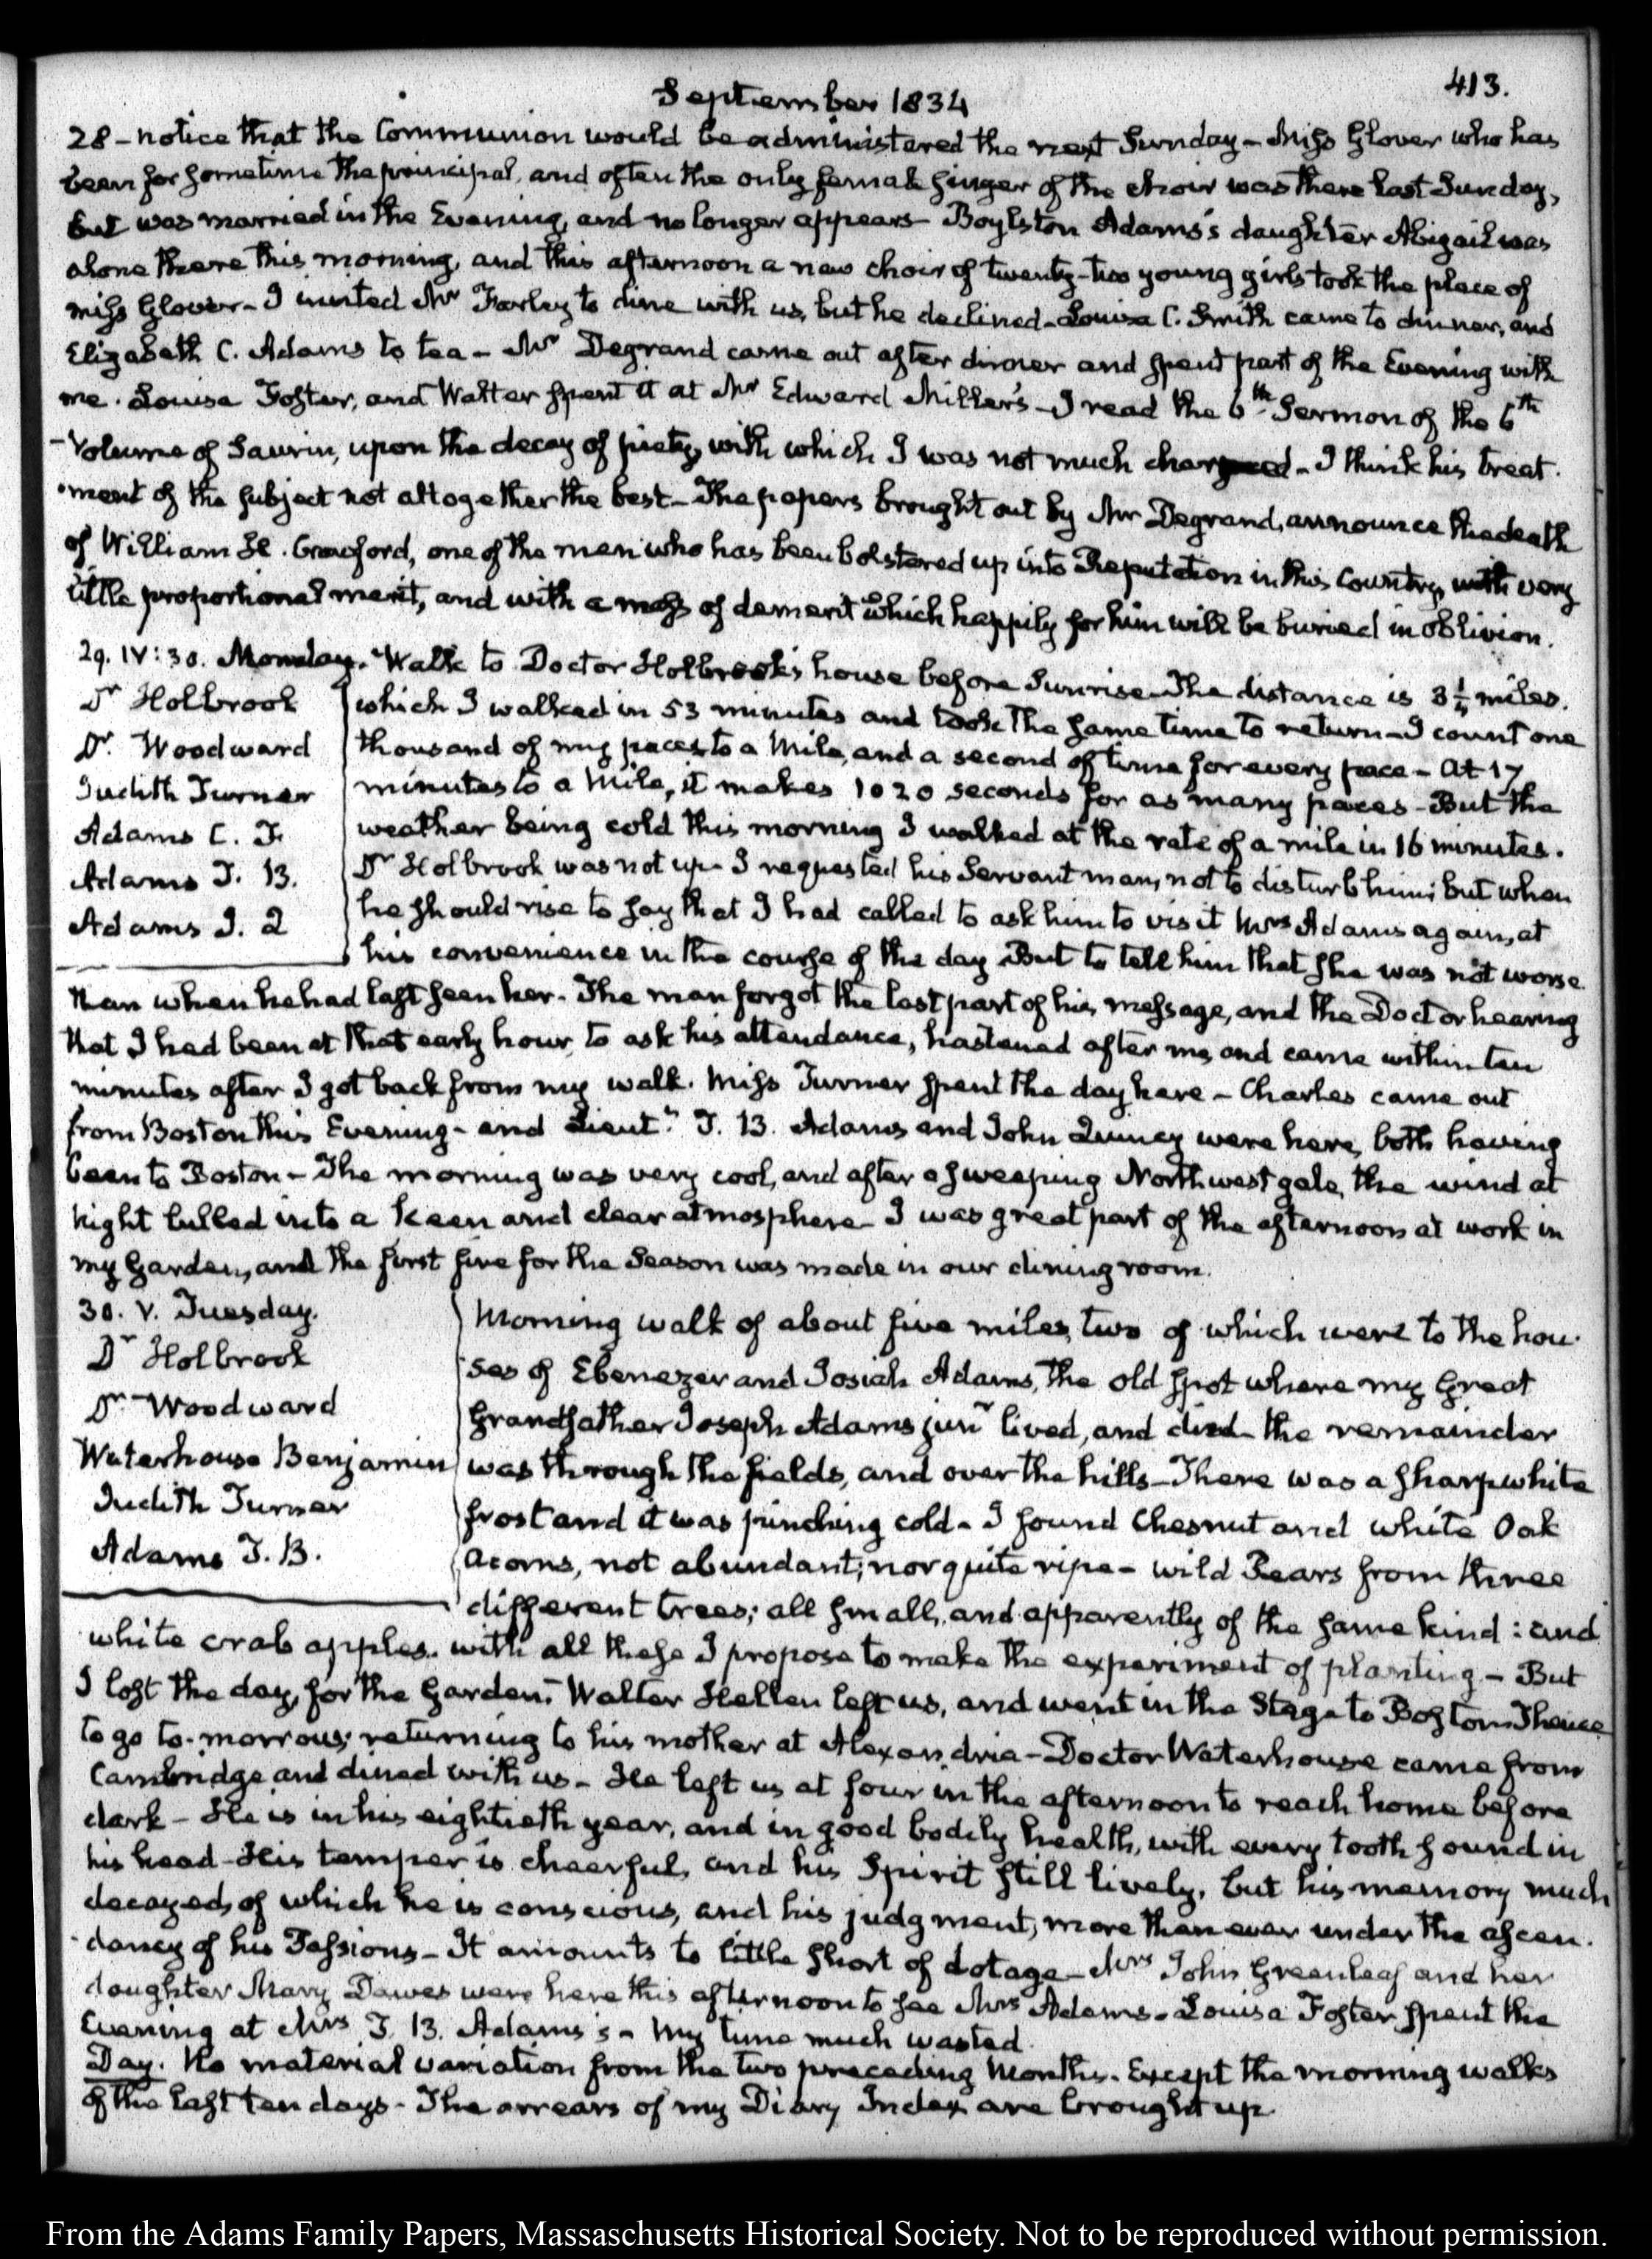 413.
September 1834
28 – notice that the Communion would be administered the next Sunday – Miss Glover who has
been for sometime the principal, and often the only female singer of the choir was there last Sunday,
but was married in the Evening, and no longer appears – Boylston Adams's daughter Abigail was
alone there this morning, and this afternoon a new choir of twenty-two young girls took the place of
miss Glover – I invited Mr Farley to dine with us, but he declined – Louisa C. Smith came to dinner, and
Elizabeth C. Adams to tea – Mr Degrand came out after dinner and spent part of the Evening with
me. Louisa Foster, and Walter spent it at Mr Edward Miller's – I read the 6th Sermon of the 6th
Volume of Saurin, upon the decay of piety, with which I was not much charmed – I think his treat-
ment of the subject not altogether the best – The papers brought out by Mr Degrand, announce the death
of William H. Crawford, one of the men who has been bolstered up into Reputation in this Country, with very
little proportional merit, and with a mass of demerit which happily for him will be buried in oblivion.
29. IV:30. Monday. Walk to Doctor Holbrook's house before Sunrise – The distance is 3¼ miles.
Dr Holbrook
Dr. Woodward
Judith Turner
Adams C. F.
Adams T. B.
Adams J. Q
which I walked in 53 minutes and took the same time to return – I count one
thousand of my paces to a Mile, and a second of time for every pace – At 17
minutes to a Mile, it makes 1020 seconds for as many paces – But the
weather being cold this morning I walked at the rate of a mile in 16 minutes.
Dr Holbrook was not up – I requested his Servant man, not to disturb him; but when
he should rise to say that I had called to ask him to visit Mrs Adams again, at
his convenience in the course of the day But to tell him that she was not worse
than when he had last seen her – The man forgot the last part of his message, and the Doctor hearing
that I had been at that early hour, to ask his attendance, hastened after me, and came within ten
minutes after I got back from my walk. Miss Turner spent the day here – Charles came out
from Boston this Evening – and Lieut. T. B. Adams and John Quincy were here, both having
been to Boston – The morning was very cool, and after a sweeping Northwest gale, the wind at
night lulled into a keen and clear atmosphere – I was great part of the afternoon at work in
my Garden, and the first fire for the Season was made in our dining room.
30. V. Tuesday.
Dr Holbrook
Dr Woodward
Waterhouse Benjamin
Judith Turner
Adams T. B.
Morning walk of about five miles, two of which were to the hou-
ses of Ebenezer and Josiah Adams, the old spot where my Great
Grandfather Joseph Adams junr lived, and died – the remainder
was through the fields, and over the hills – There was a sharp white
frost and it was pinching cold – I found Chesnut and white Oak
acorns, not abundant; nor quite ripe – wild Pears from three
different trees; all small, and apparently of the same kind: and
white crab apples. with all these I propose to make the experiment of planting – But
I lost the day, for the Garden. Walter Hellen left us, and went in the Stage to Boston Thence
to go to-morrow; returning to his mother at Alexandria – Doctor Waterhouse came from
Cambridge and dined with us – He left us at four in the afternoon to reach home before
dark – He is in his eightieth year, and in good bodily health, with every tooth sound in
his head – His temper is cheerful, and his Spirit still lively, but his memory much
decayed, of which he is conscious, and his judgment, more than ever under the ascen-
dancy of his Passions – It amounts to little short of dotage – Mrs John Greenleaf and her
daughter Mary Dawes were here this afternoon to see Mrs Adams – Louisa Foster spent the
Evening at Mrs T. B. Adams's – My time much wasted.
Day. No material variation from the two preceding Months. Except the morning walks
of the last ten days – The arrears of my Diary Index are brought up.
From the Adams Family Papers, Massaschusetts Historical Society. Not to be reproduced without permission.